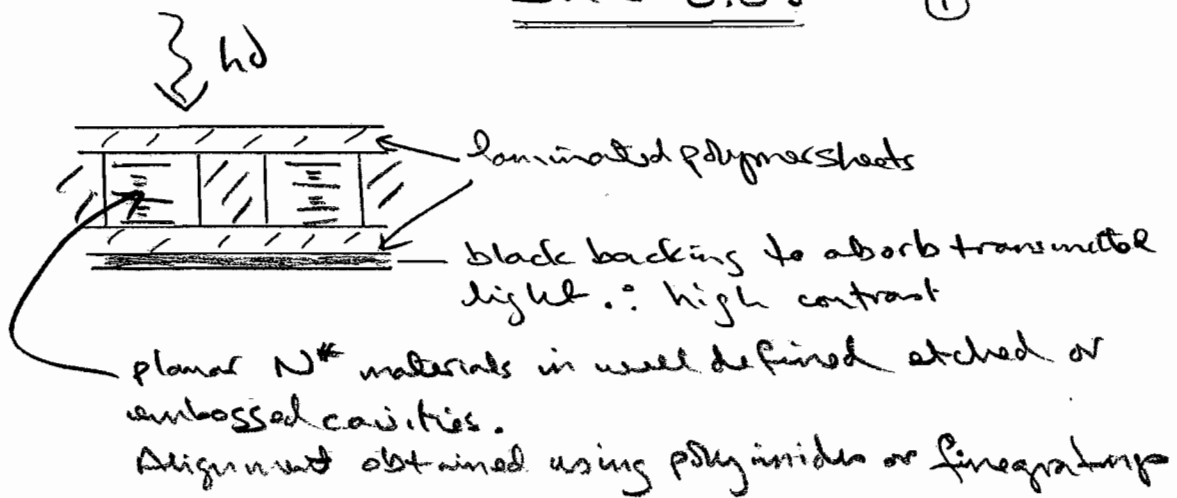 ①
hν
laminated polymer sheets
black backing to aborb transmitted
light ∴ high contrast
planar N* materials in well defined etched or
embossed cavities.
Alignment obtained using polyimides or fine gratings